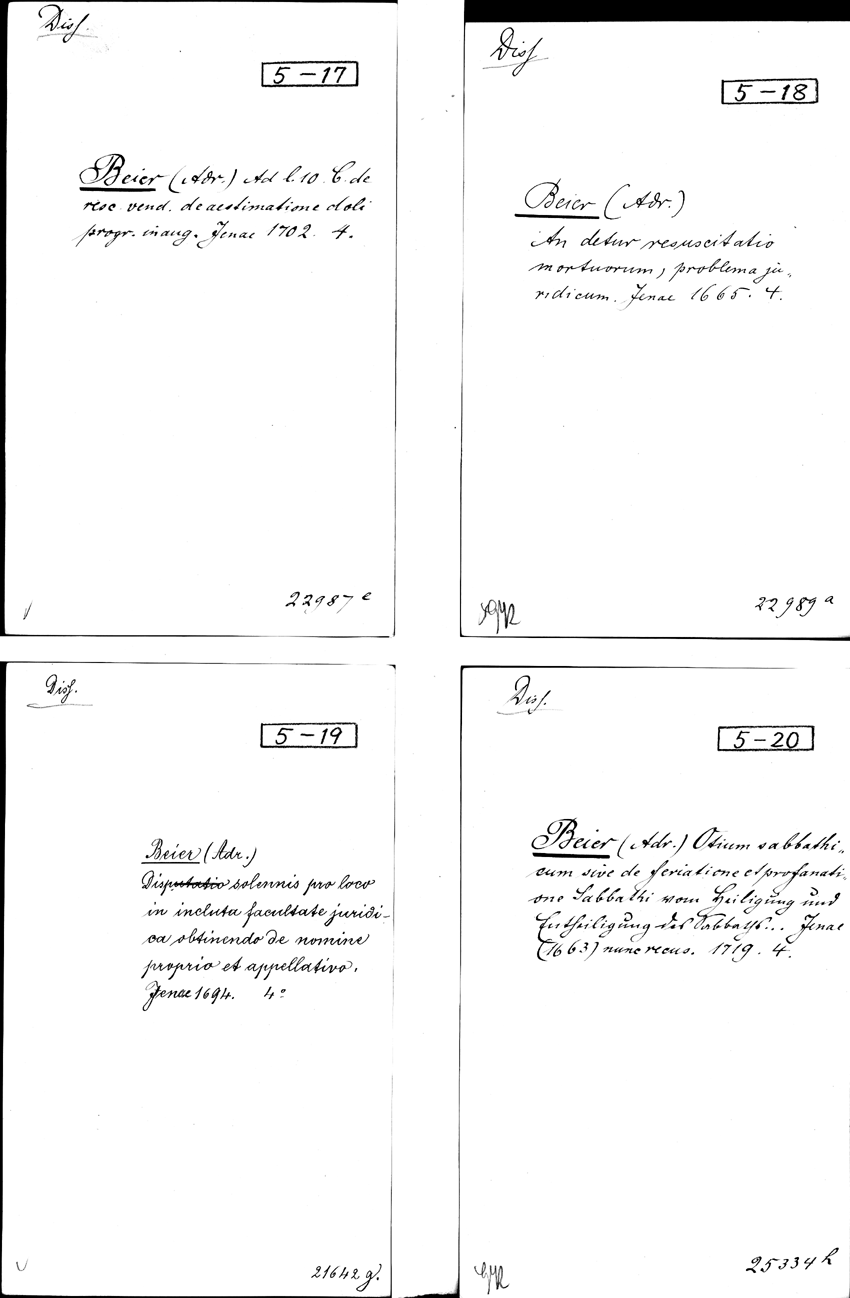 Diss.
5-17
Beier (Adr.) Ad l. 10 C. de
resc. vend. de aestimatione doli
progr. inaug. Jenae 1702. 4.
22987 e
Diss
5-18
Beier (Adr.)
An detur resuscitatio
mortuorum, problema ju-
ridicum. Jenae 1665. 4.
22989 a
Diss.
5-19
Beier (Adr.)
Disputatio solennis pro loco
in incluta facultate juridi-
ca obtinendo de nomine
proprio et appellativo.
Jenae 1694. 4°
21642 g.
Diss.
5-20
Beier (Adr.) Otium sabbathi-
cum sive de feriatione et profanati-
one Sabbathi vom Heiligung und
Entheiligung des Sabbaths... Jenae
(1663) nunc recus. 1719. 4.
25334 h